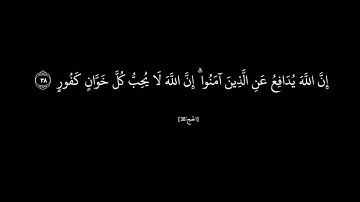 إِنَّ اللَّهَ يُدَافِعُ عَنِ الَّذِينَ آمَنُوا ۗ إِنَّ اللَّهَ لَا يُحِبُّ كُلَّ خَوَّانٍ كَفُورٍ ﴿٣٨﴾
[الحج:38]